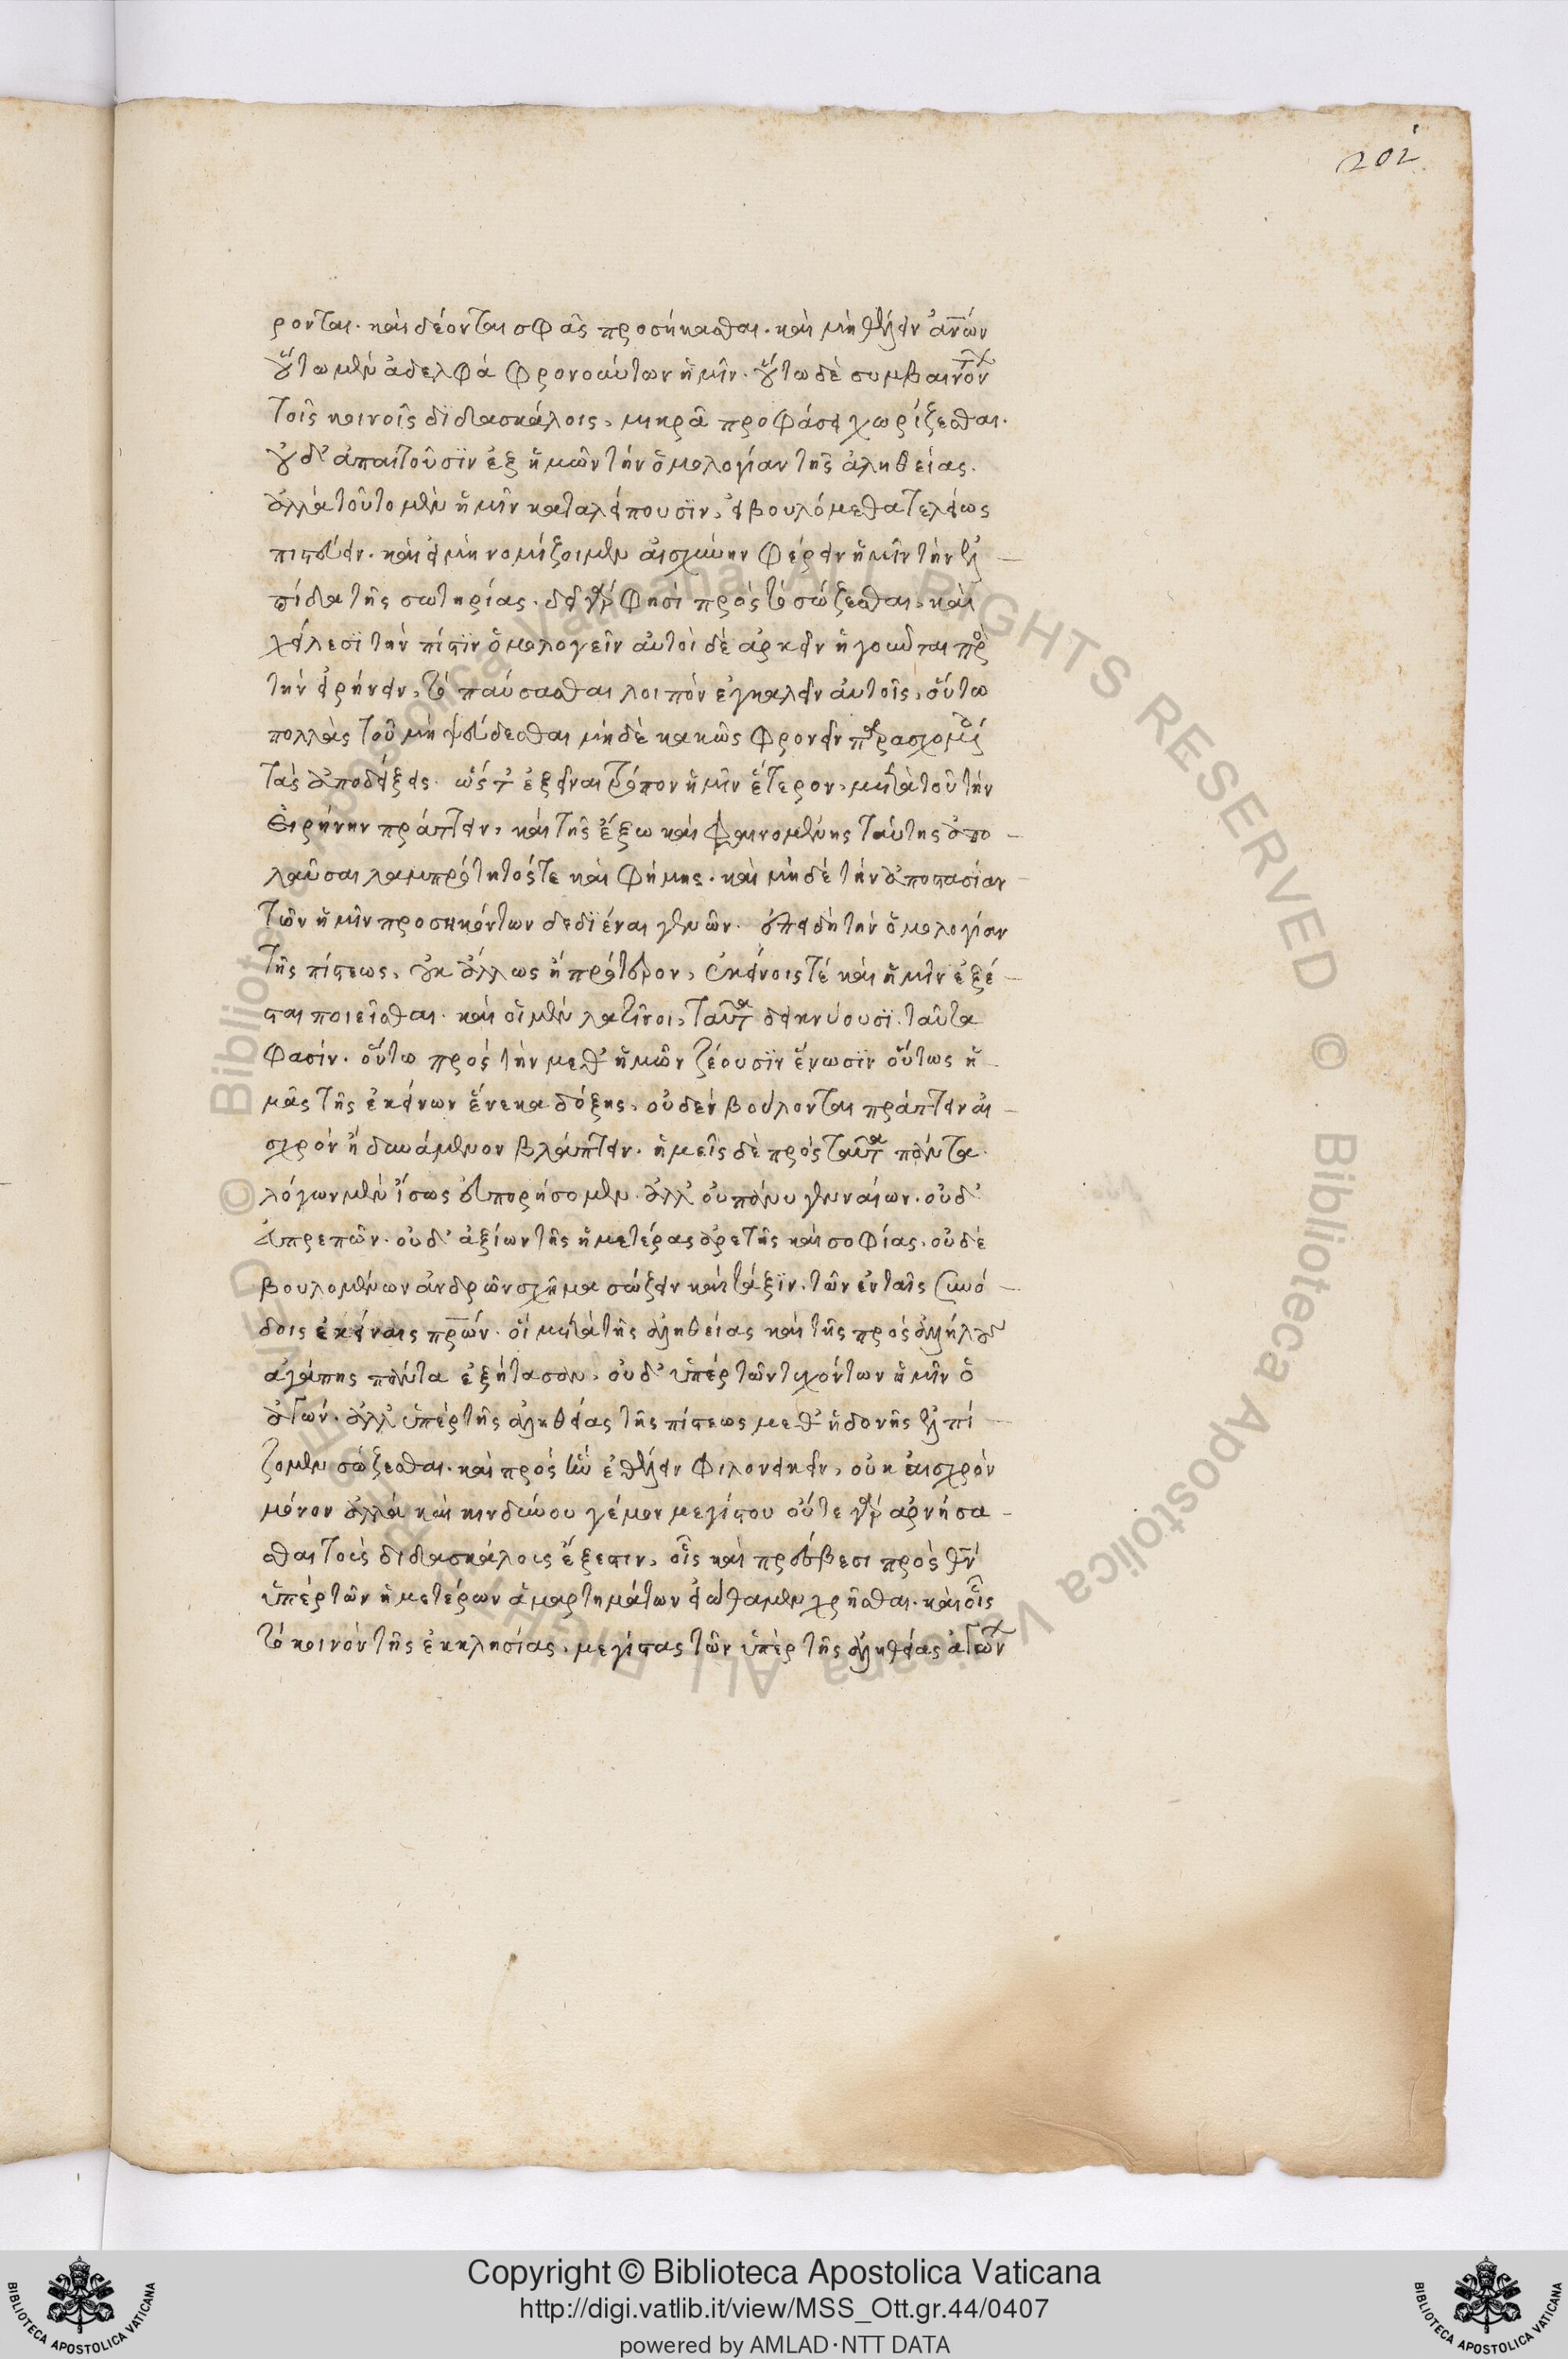 202
ρονται. καὶ δέονται σφᾶς προσήκασθαι. καὶ μὴ θέλειν ἀν͞ων
οὕτω μὲν ἀδελφὰ φρονούντων ἡμῖν. οὕτω δὲ συμβαινόντων
τοῖς κοινοῖς διδασκάλοις, μικρᾶ προφάσει χωρίζεσθαι.
οὐδ' ἀπαιτοῦσϊν ἐξ ἡμῶν τὴν ὁμολογίαν τῆς ἀληθείας.
ἀλλὰ τοῦτο μὲν ἡμῖν καταλείπουσϊν, εἰ βουλόμεθα τελείως
πιστεύειν. καὶ εἰ μὴ νομίζοιμεν αἰσχύνην φέρειν ἡμῖν τὴν ἐλ
πίδα τῆς σωτηρίας. δεῖ γάρ φησι πρὸς τὸ σώζεσθαι, καὶ
χείλεσϊ τὴν πίστϊν ὁμολογεῖν αὐτοὶ δὲ ἀρκεῖν ἡγοῦνται πρὸς
τὴν εἰρήνην, τὸ παύσασθαι λοιπὸν ἐγκαλεῖν αὐτοῖς, οὕτω
πολλὰς τοῦ μὴ ψεύδεσθαι μηδὲ κακῶς φρονεῖν παρασχομένοις
τὰς ἀποδείξεις. ὥς τ' ἐξεῖναι τρόπον ἡμῖν ἕτερον, μετὰ τοῦ τὴν
Εἰρήνην πράττειν, καὶ τῆς ἔξω καὶ φαινομένης ταύτης ἀπο
λαῦσαι λαμπρότητός τε καὶ φήμης. καὶ μηδὲ τὴν ἀποστασίαν
τῶν ἡμῖν προσηκόντων δεδϊέναι γενῶν. ἐπειδὴ τὴν ὁμολογίαν
τῆς πίστεως, οὐκ ἄλλως ἢ πρότερον, ἐκείνοις τὲ καὶ ἡμῖν ἐξέ
σται ποιεῖσθαι. καὶ οἱ μὲν λατῖνοι, ταῦτα δεικνύουσϊ. ταῦτα
φασίν. οὕτω πρὸς τὴν μεθ' ἡμῶν ζέουσϊν ἕνωσϊν οὕτως ἡ
μᾶς τῆς ἐκείνων ἕνεκα δόξης, οὐδὲν βούλονται πράττειν αἰ
σχρὸν ἢ δυνάμενον βλάπτειν. ἡμεῖς δὲ πρὸς ταῦτα πάντα.
λόγων μὲν ἴσως εὐπορήσομεν. ἀλλ' οὐ πάνυ γενναίων. οὐδ'
εὐπρεπῶν. οὐδ' ἀξίων τῆς ἡμετέρας ἀρετῆς καὶ σοφίας. οὐδὲ
βουλομένων ἀνδρῶν σχῆμα σώζειν καὶ τάξϊν. τῶν ἐν ταῖς συνό
δοις ἐκείναις πρ͞ων. οἱ μετὰ τῆς ἀληθείας καὶ τῆς πρὸς ἀλλήλους
ἀγάπης πάντα ἐξήτασαν, οὐδ' ὑπὲρ τῶν τυχόντων ἡμῖν ὁ
ἀγών. ἀλλ' ὑπὲρ τῆς ἀληθείας τῆς πίστεως μεθ' ἡδονῆς ἐλπί
ζομεν σώζεσθαι. καὶ πρὸς ἣν ἐθέλειν φιλονεικεῖν, οὐκ αἰσχρὸν
μόνον ἀλλὰ καὶ κινδύνου γέμον μεγίστου οὔτε γὰρ ἀρνήσα
σθαι τοὺς διδασκάλους ἔξεστιν, οἷς καὶ πρέσβεσι πρὸς θ͞ν
ὑπὲρ τῶν ἡμετέρων ἁμαρτημάτων εἰώθαμεν χρῆσθαι. καὶ οἷς
τὸ κοινὸν τῆς ἐκκλησίας, μεγίστας τῶν ὑπὲρ τῆς ἀληθείας ἀγώνων
Copyright © Biblioteca Apostolica Vaticana
http://digi.vatlib.it/view/MSS_Ott.gr.44/0407
powered by AMLAD·NTT DATA